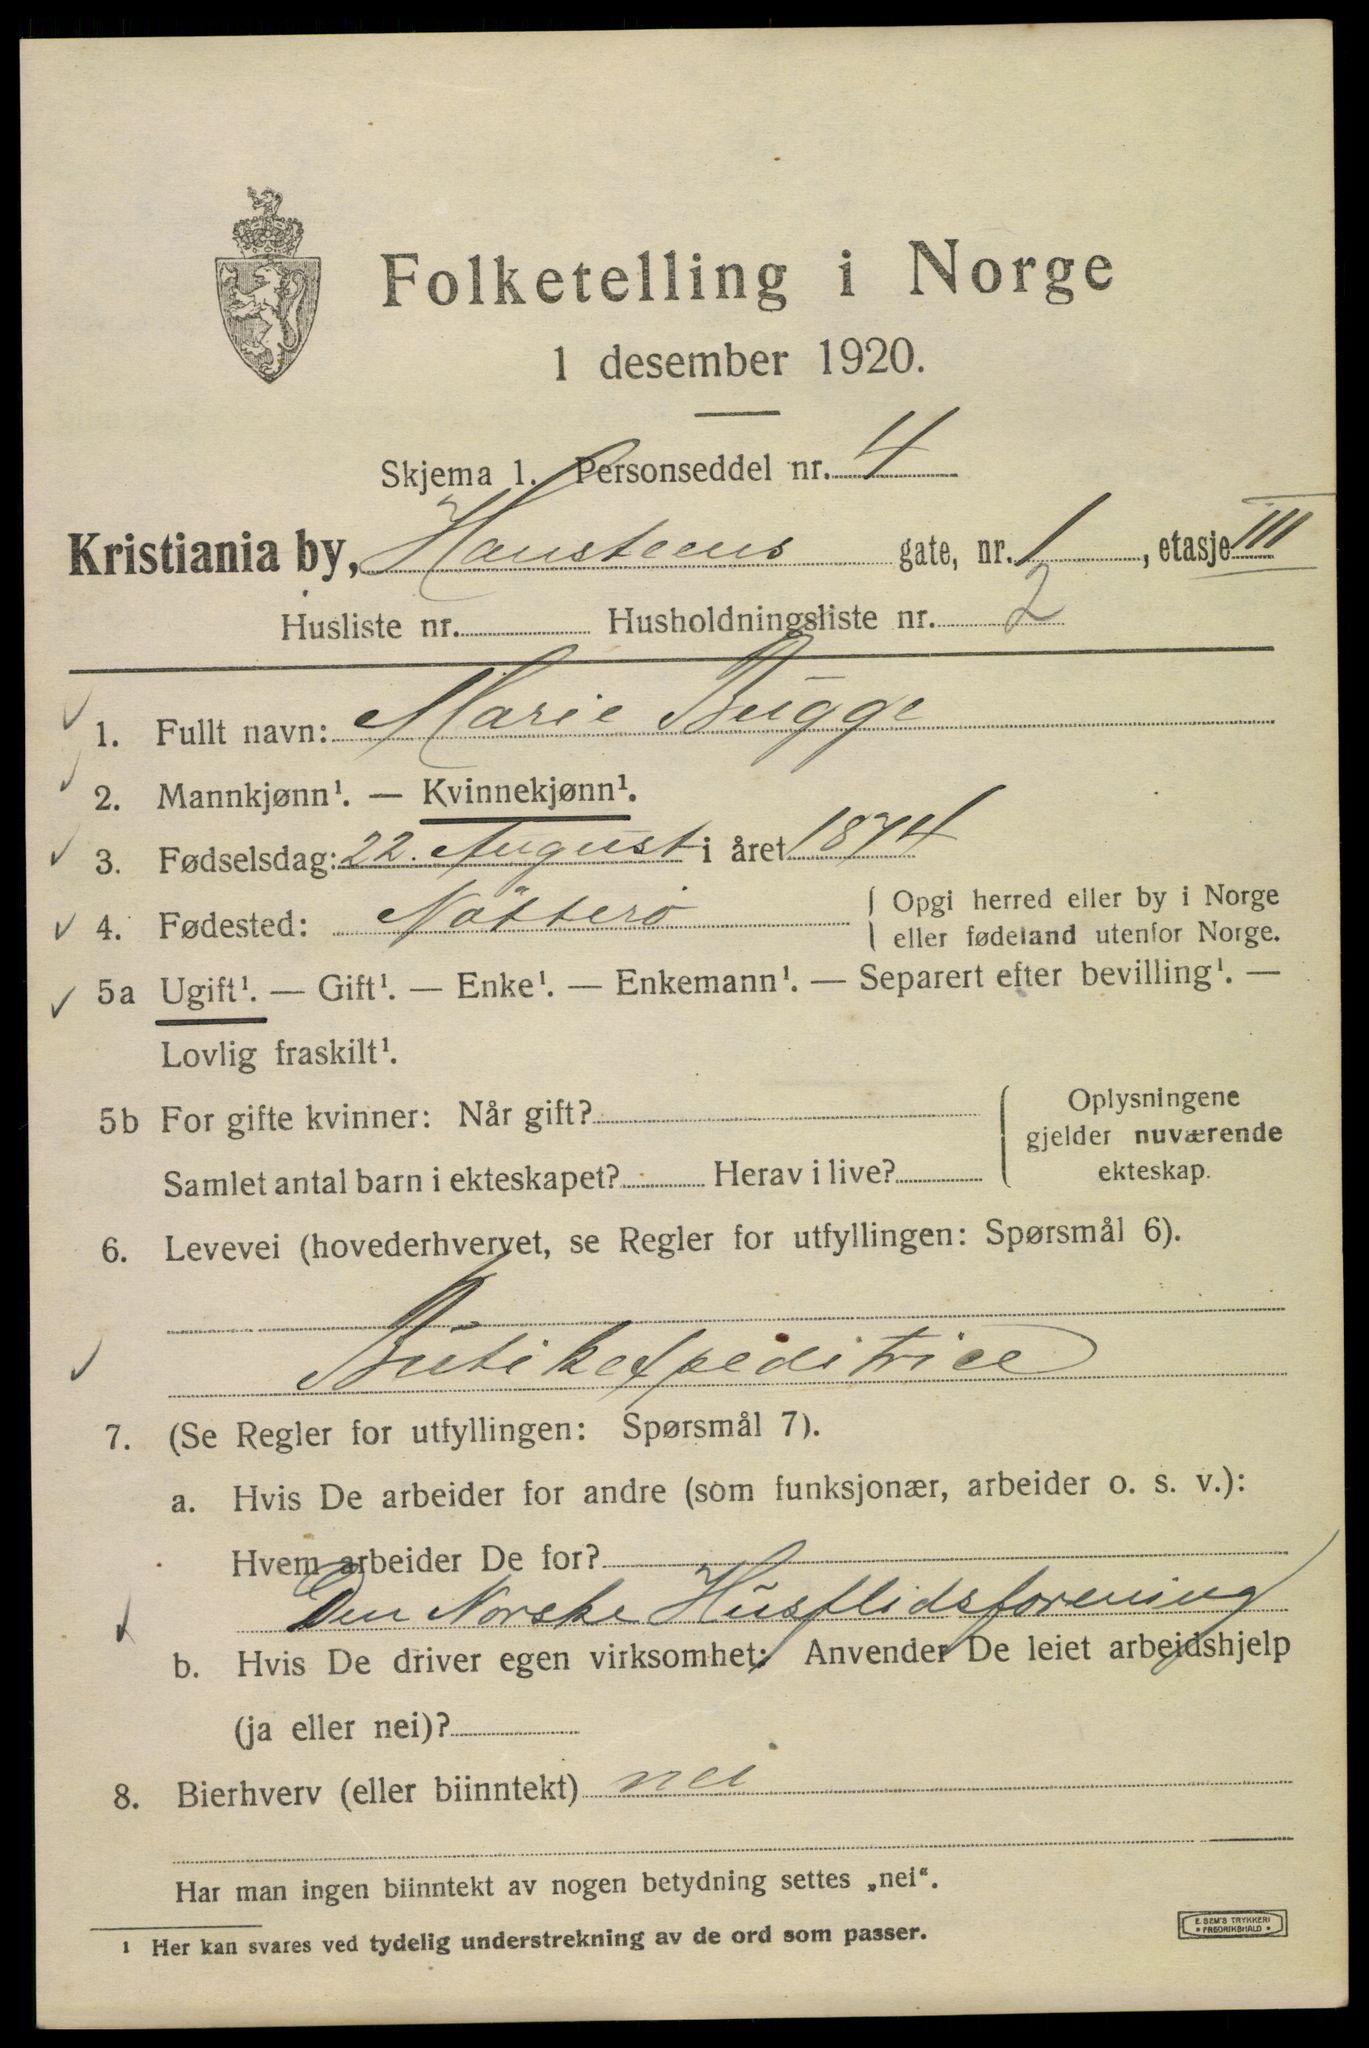 Folketelling i Norge
1 desember 1920.
Skjema 1. Personseddel nr. 4
Kristiania by, Hansteens gate, nr. 1, etasje III
Husliste nr. Husholdningsliste nr. 2
1. Fullt navn: Marie Bugge
2. Mannkjønn¹. — Kvinnekjønn¹.
3. Fødselsdag: 22. August i året 1874
4. Fødested: Nötterö { Opgi herred eller by i Norge
eller fødeland utenfor Norge.
5a Ugift¹. — Gift¹. — Enke¹. — Enkemann¹. — Separert efter bevilling¹. —
Lovlig fraskilt¹.
5b For gifte kvinner: Når gift? { Oplysningene
gjelder nuværende
Samlet antal barn i ekteskapet? Herav i live? ekteskap.
6. Levevei (hovederhvervet, se Regler for utfyllingen: Spørsmål 6).
Butikexpeditrice
7. (Se Regler for utfyllingen: Spørsmål 7).
a. Hvis De arbeider for andre (som funksjonær, arbeider o. s. v.):
Hvem arbeider De for?
Den Norske Husflidsforening
b. Hvis De driver egen virksomhet: Anvender De leiet arbeidshjelp
(ja eller nei)?
8. Bierhverv (eller biinntekt) nei
Har man ingen biinntekt av nogen betydning settes „nei“.
¹ Her kan svares ved tydelig understrekning av de ord som passer.
E. SEM'S TRYKKERI
* FREDRIKSHALD *